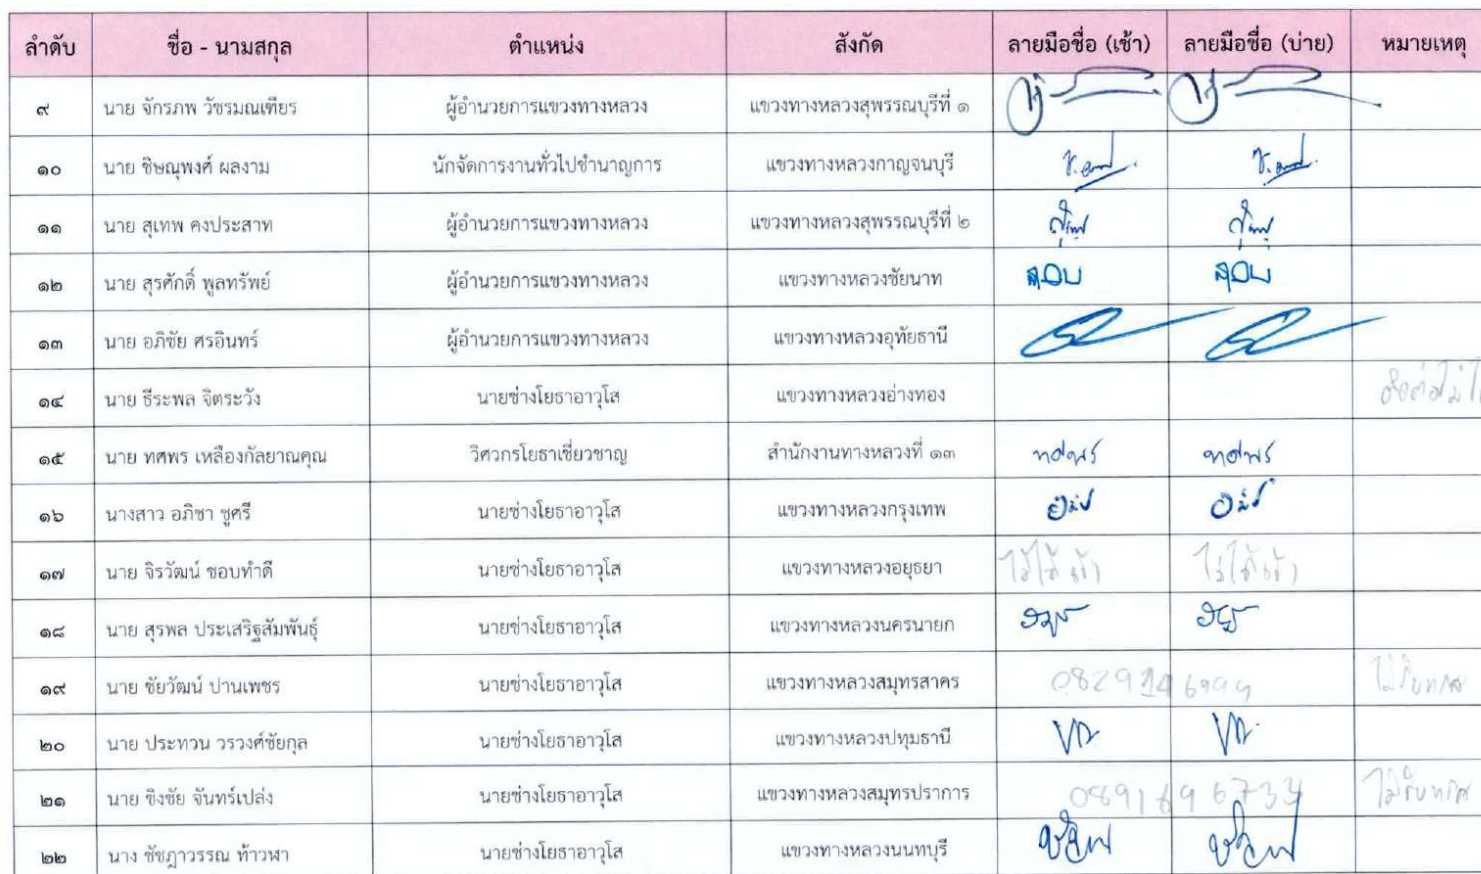 ลำดับ ชื่อ - นามสกุล ตำแหน่ง สังกัด ลายมือชื่อ (เช้า) ลายมือชื่อ (บ่าย) หมายเหตุ
๙ นาย จักรภพ วัชรมณเฑียร ผู้อำนวยการแขวงทางหลวง แขวงทางหลวงสุพรรณบุรีที่ ๑
๑๐ นาย ชิษณุพงศ์ ผลงาม นักจัดการงานทั่วไปชำนาญการ แขวงทางหลวงกาญจนบุรี
๑๑ นาย สุเทพ คงประสาท ผู้อำนวยการแขวงทางหลวง แขวงทางหลวงสุพรรณบุรีที่ ๒
๑๒ นาย สุรศักดิ์ พูลทรัพย์ ผู้อำนวยการแขวงทางหลวง แขวงทางหลวงชัยนาท
๑๓ นาย อภิชัย ศรอินทร์ ผู้อำนวยการแขวงทางหลวง แขวงทางหลวงอุทัยธานี
๑๔ นาย ธีระพล จิตระวัง นายช่างโยธาอาวุโส แขวงทางหลวงอ่างทอง
๑๕ นาย ทศพร เหลืองกัลยาณคุณ วิศวกรโยธาเชี่ยวชาญ สำนักงานทางหลวงที่ ๑๓ ทศพร ทศพร
๑๖ นางสาว อภิชา ชูศรี นายช่างโยธาอาวุโส แขวงทางหลวงกรุงเทพ
๑๗ นาย จิรวัฒน์ ชอบทำดี นายช่างโยธาอาวุโส แขวงทางหลวงอยุธยา ไม่ได้เข้า ไม่ได้เข้า
๑๘ นาย สุรพล ประเสริฐสัมพันธุ์ นายช่างโยธาอาวุโส แขวงทางหลวงนครนายก
๑๙ นาย ชัยวัฒน์ ปานเพชร นายช่างโยธาอาวุโส แขวงทางหลวงสมุทรสาคร
๒๐ นาย ประทวน วรวงศ์ชัยกุล นายช่างโยธาอาวุโส แขวงทางหลวงปทุมธานี
๒๑ นาย ชิงชัย จันทร์เปล่ง นายช่างโยธาอาวุโส แขวงทางหลวงสมุทรปราการ
๒๒ นาง ชัชฎาวรรณ ท้าวพา นายช่างโยธาอาวุโส แขวงทางหลวงนนทบุรี